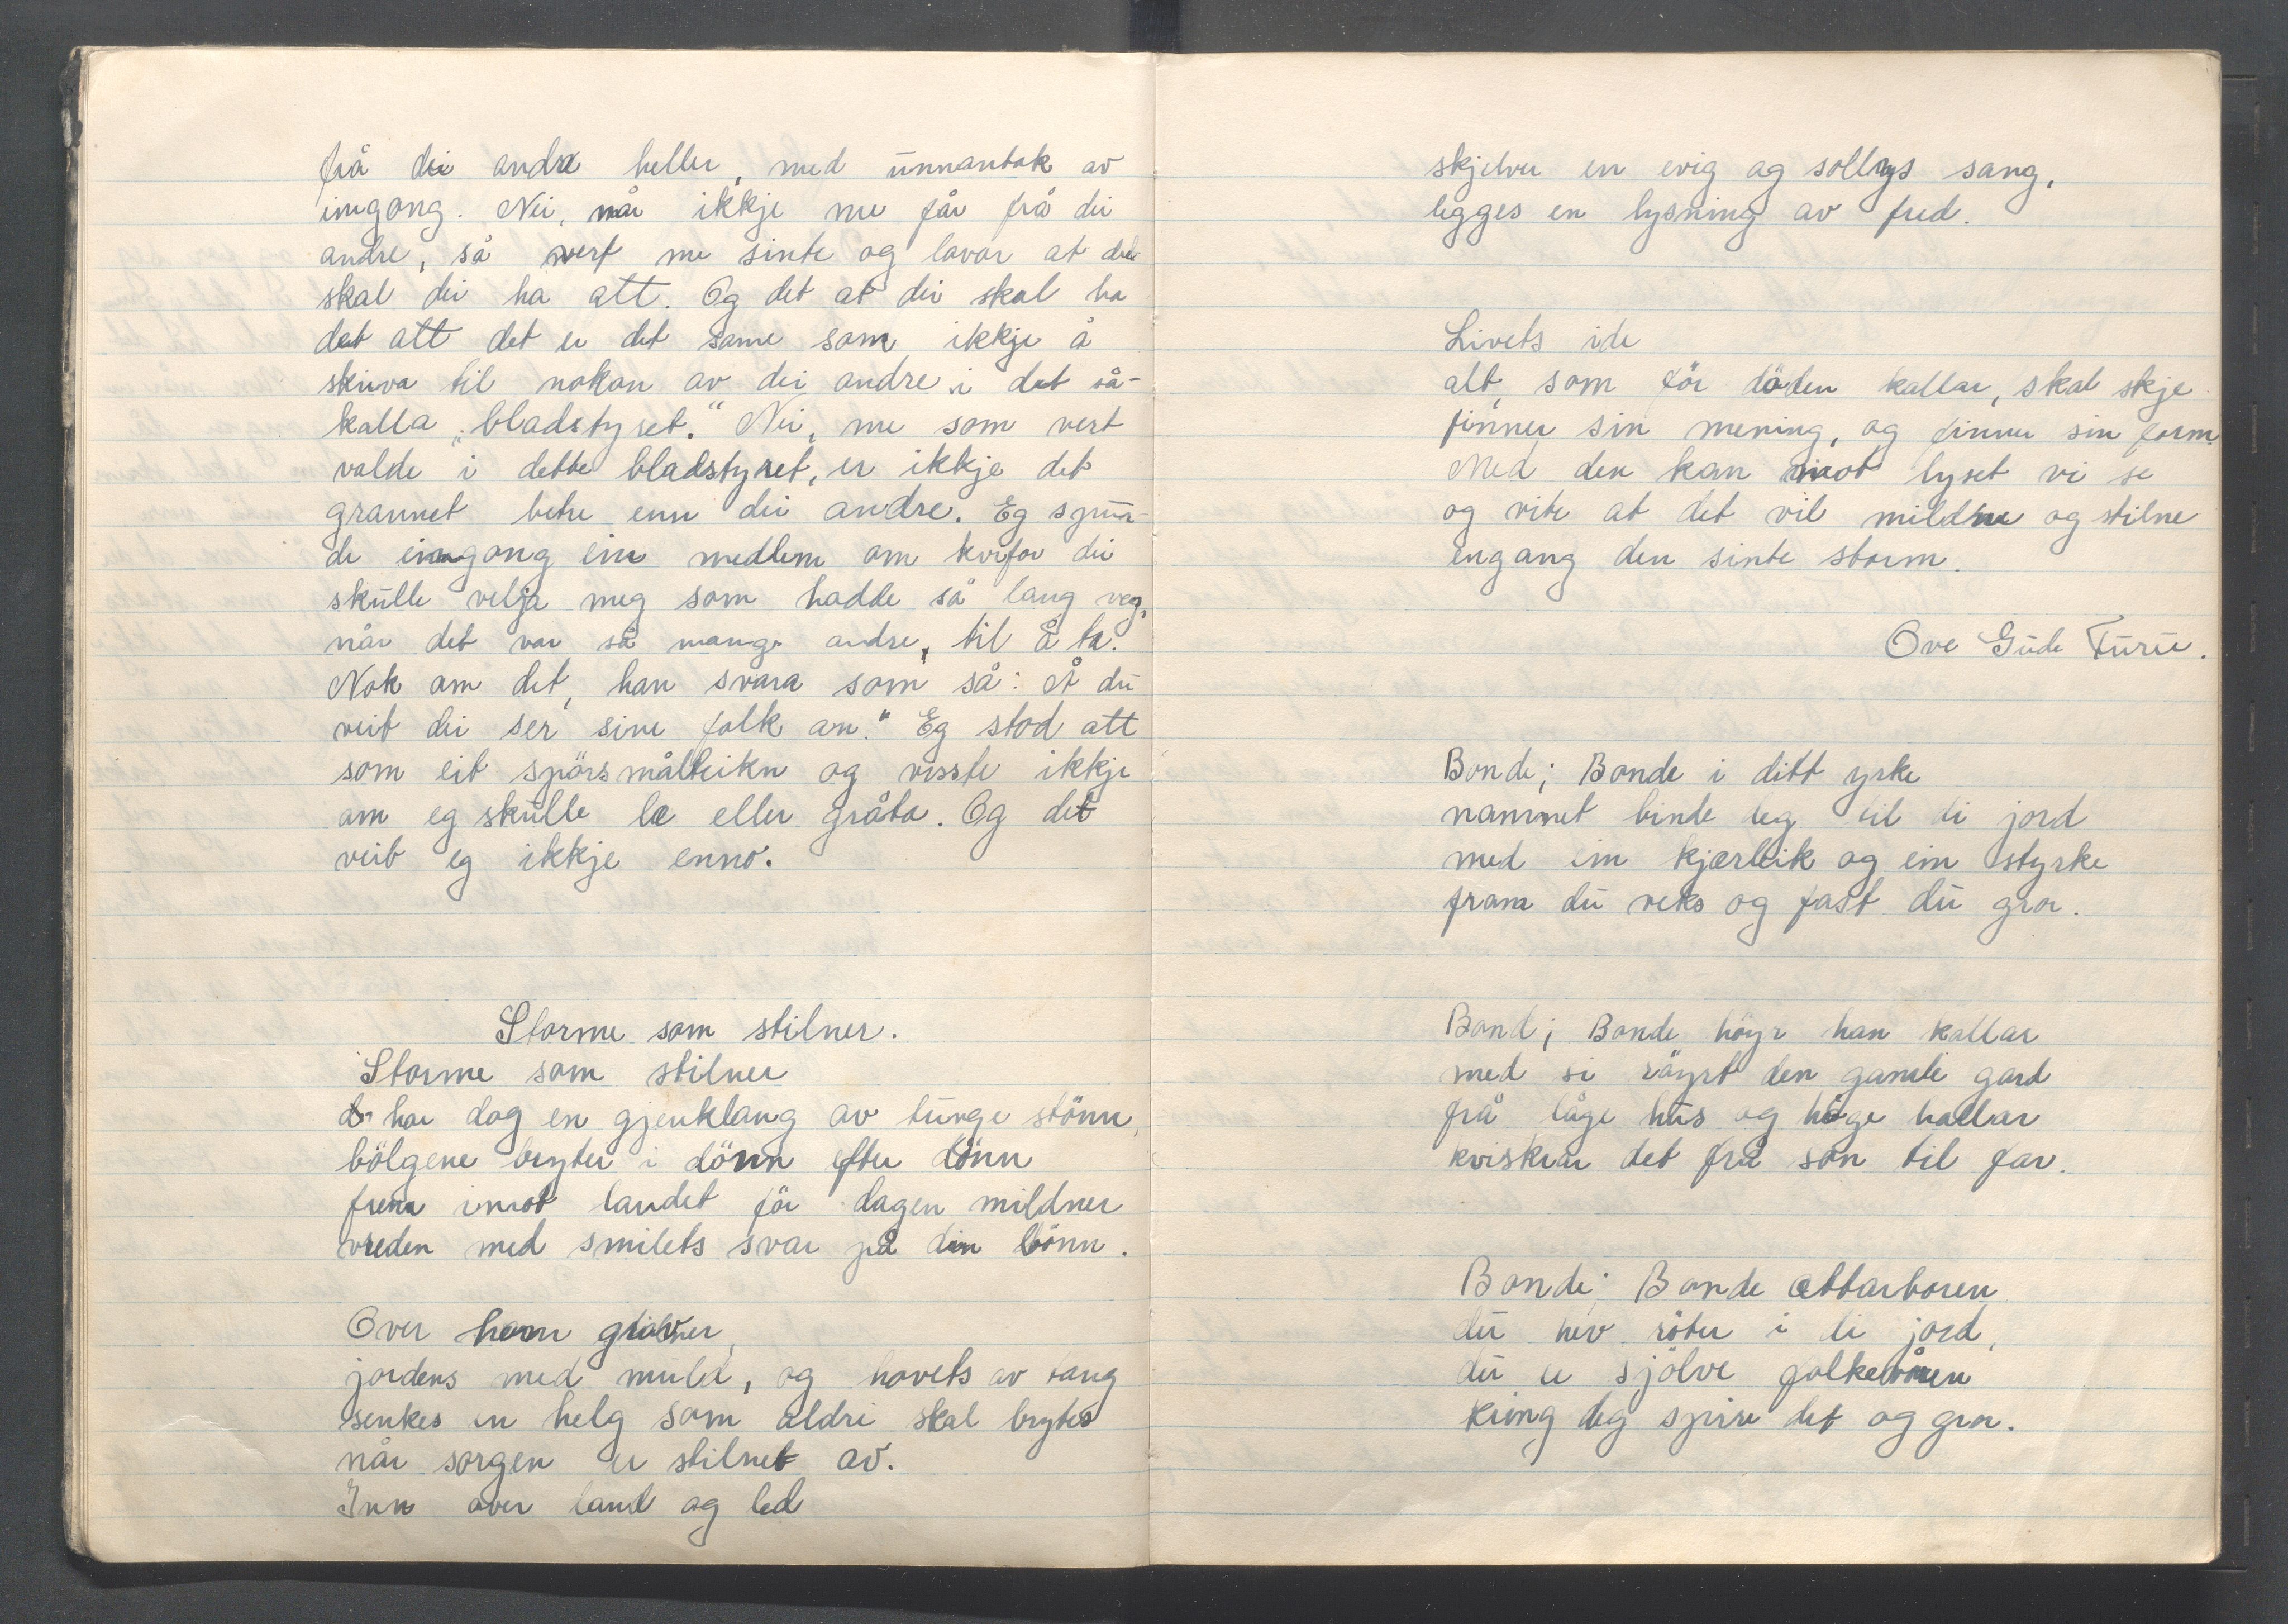 frå dei andre heller, med unnantak av
eingong. Nei, når ikkje me får frå dei
andre, så vert me sinte og lovar at det
skal dei ha att. Og det at dei skal ha
det att det er det same som ikkje å
skriva til nokon av dei andre i det så-
kalla "bladstyret." Nei, me som vert
valde i dette bladstyret, er ikkje det
grannet betre enn dei andre. Eg spur-
de eingong ein medlem om kvifor dei
skulle velja meg som hadde så lang veg,
når det var så mange andre, til å ta.
Nok om det, han svara som så: Å du
veit dei ser sine folk an." Eg stod att
som eit spörsmålteikn og visste ikkje
om eg skulle le eller gråta. Og det
veit eg ikkje enno.
Storme som stilner.
Storme som stilner
har dog en gjenklang av tunge stönn,
bölgene bryter i dönn efter dönn
frem imot landet för dagen mildner
vreden med smilets svar på din bönn.
Over ham graver,
jordens med muld, og havets av tang
senkes en helg som aldri skal brytes
når sorgen er stilnet av.
Inn over land og led
skjelver en evig og sollys sang,
legges en lysning av fred.
Livets ide
alt, som för döden kallar, skal skje
finner sin mening, og finner sin form
Med den kan mot lyset vi se
og vite at det vil mildne og stilne
engang den sinte storm.
Ove Gude Furu.
Bonde; Bonde i ditt yrke
namnet binde deg til di jord
med ein kjærleik og ein styrke
fram du veks og fast du gror.
Bond; Bonde höyr han kallar
med si röyst den gamle gard
frå låge hus og höge hallar
kviskrar det frå son til far.
Bonde; Bonde ættarboren
du hev röter i di jord,
du er sjölve folkevåren
kring deg spire det og gror.